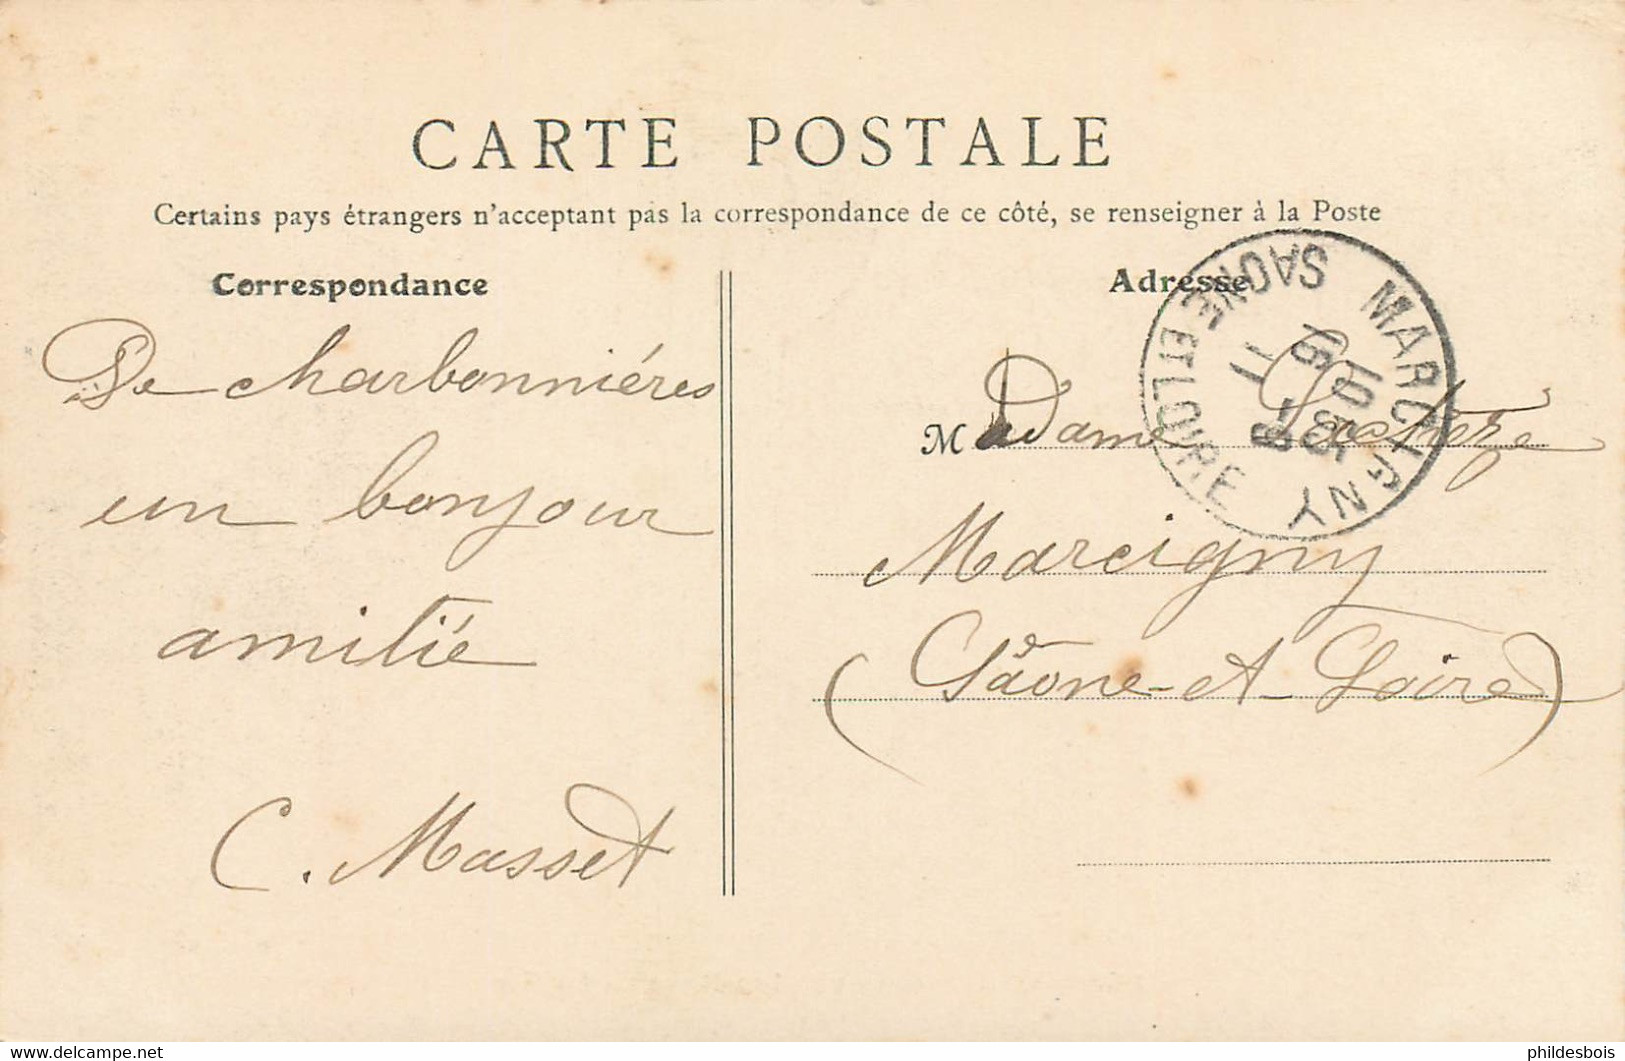 CARTE POSTALE
Certains pays étrangers n'acceptant pas la correspondance de ce côté, se renseigner à la Poste
Correspondance
De charbonniéres
un bonjour
amitié
C. Masset
Adresse
Madame
Marcigny
(Sâone-et-Loire)
MARCIGNY
SAONE ET LOIRE
delcampe.net
phildesbois